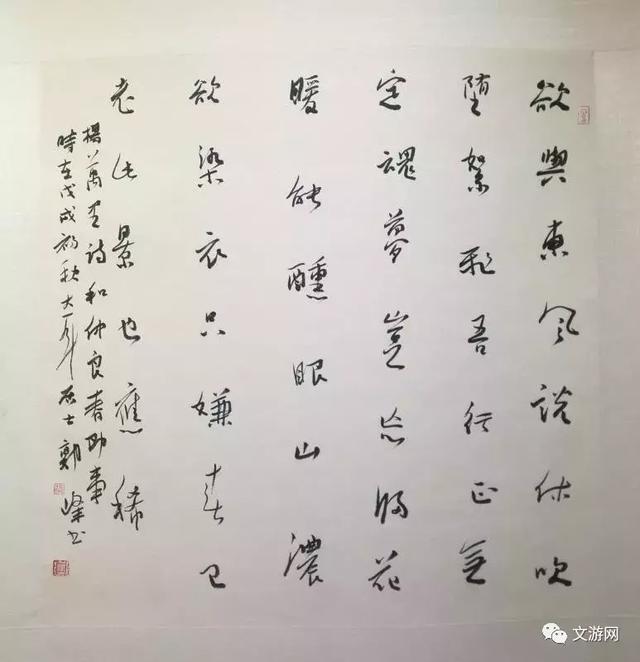 欲與東風說休吹
堕絮飛吾行正无
定魂夢豈忘歸花
暖能醺眼山濃
欲染衣只嫌春已
老此景也應稀
楊萬里詩和仲良春即事
時在戊戌初秋大居士郭峰书
文游网